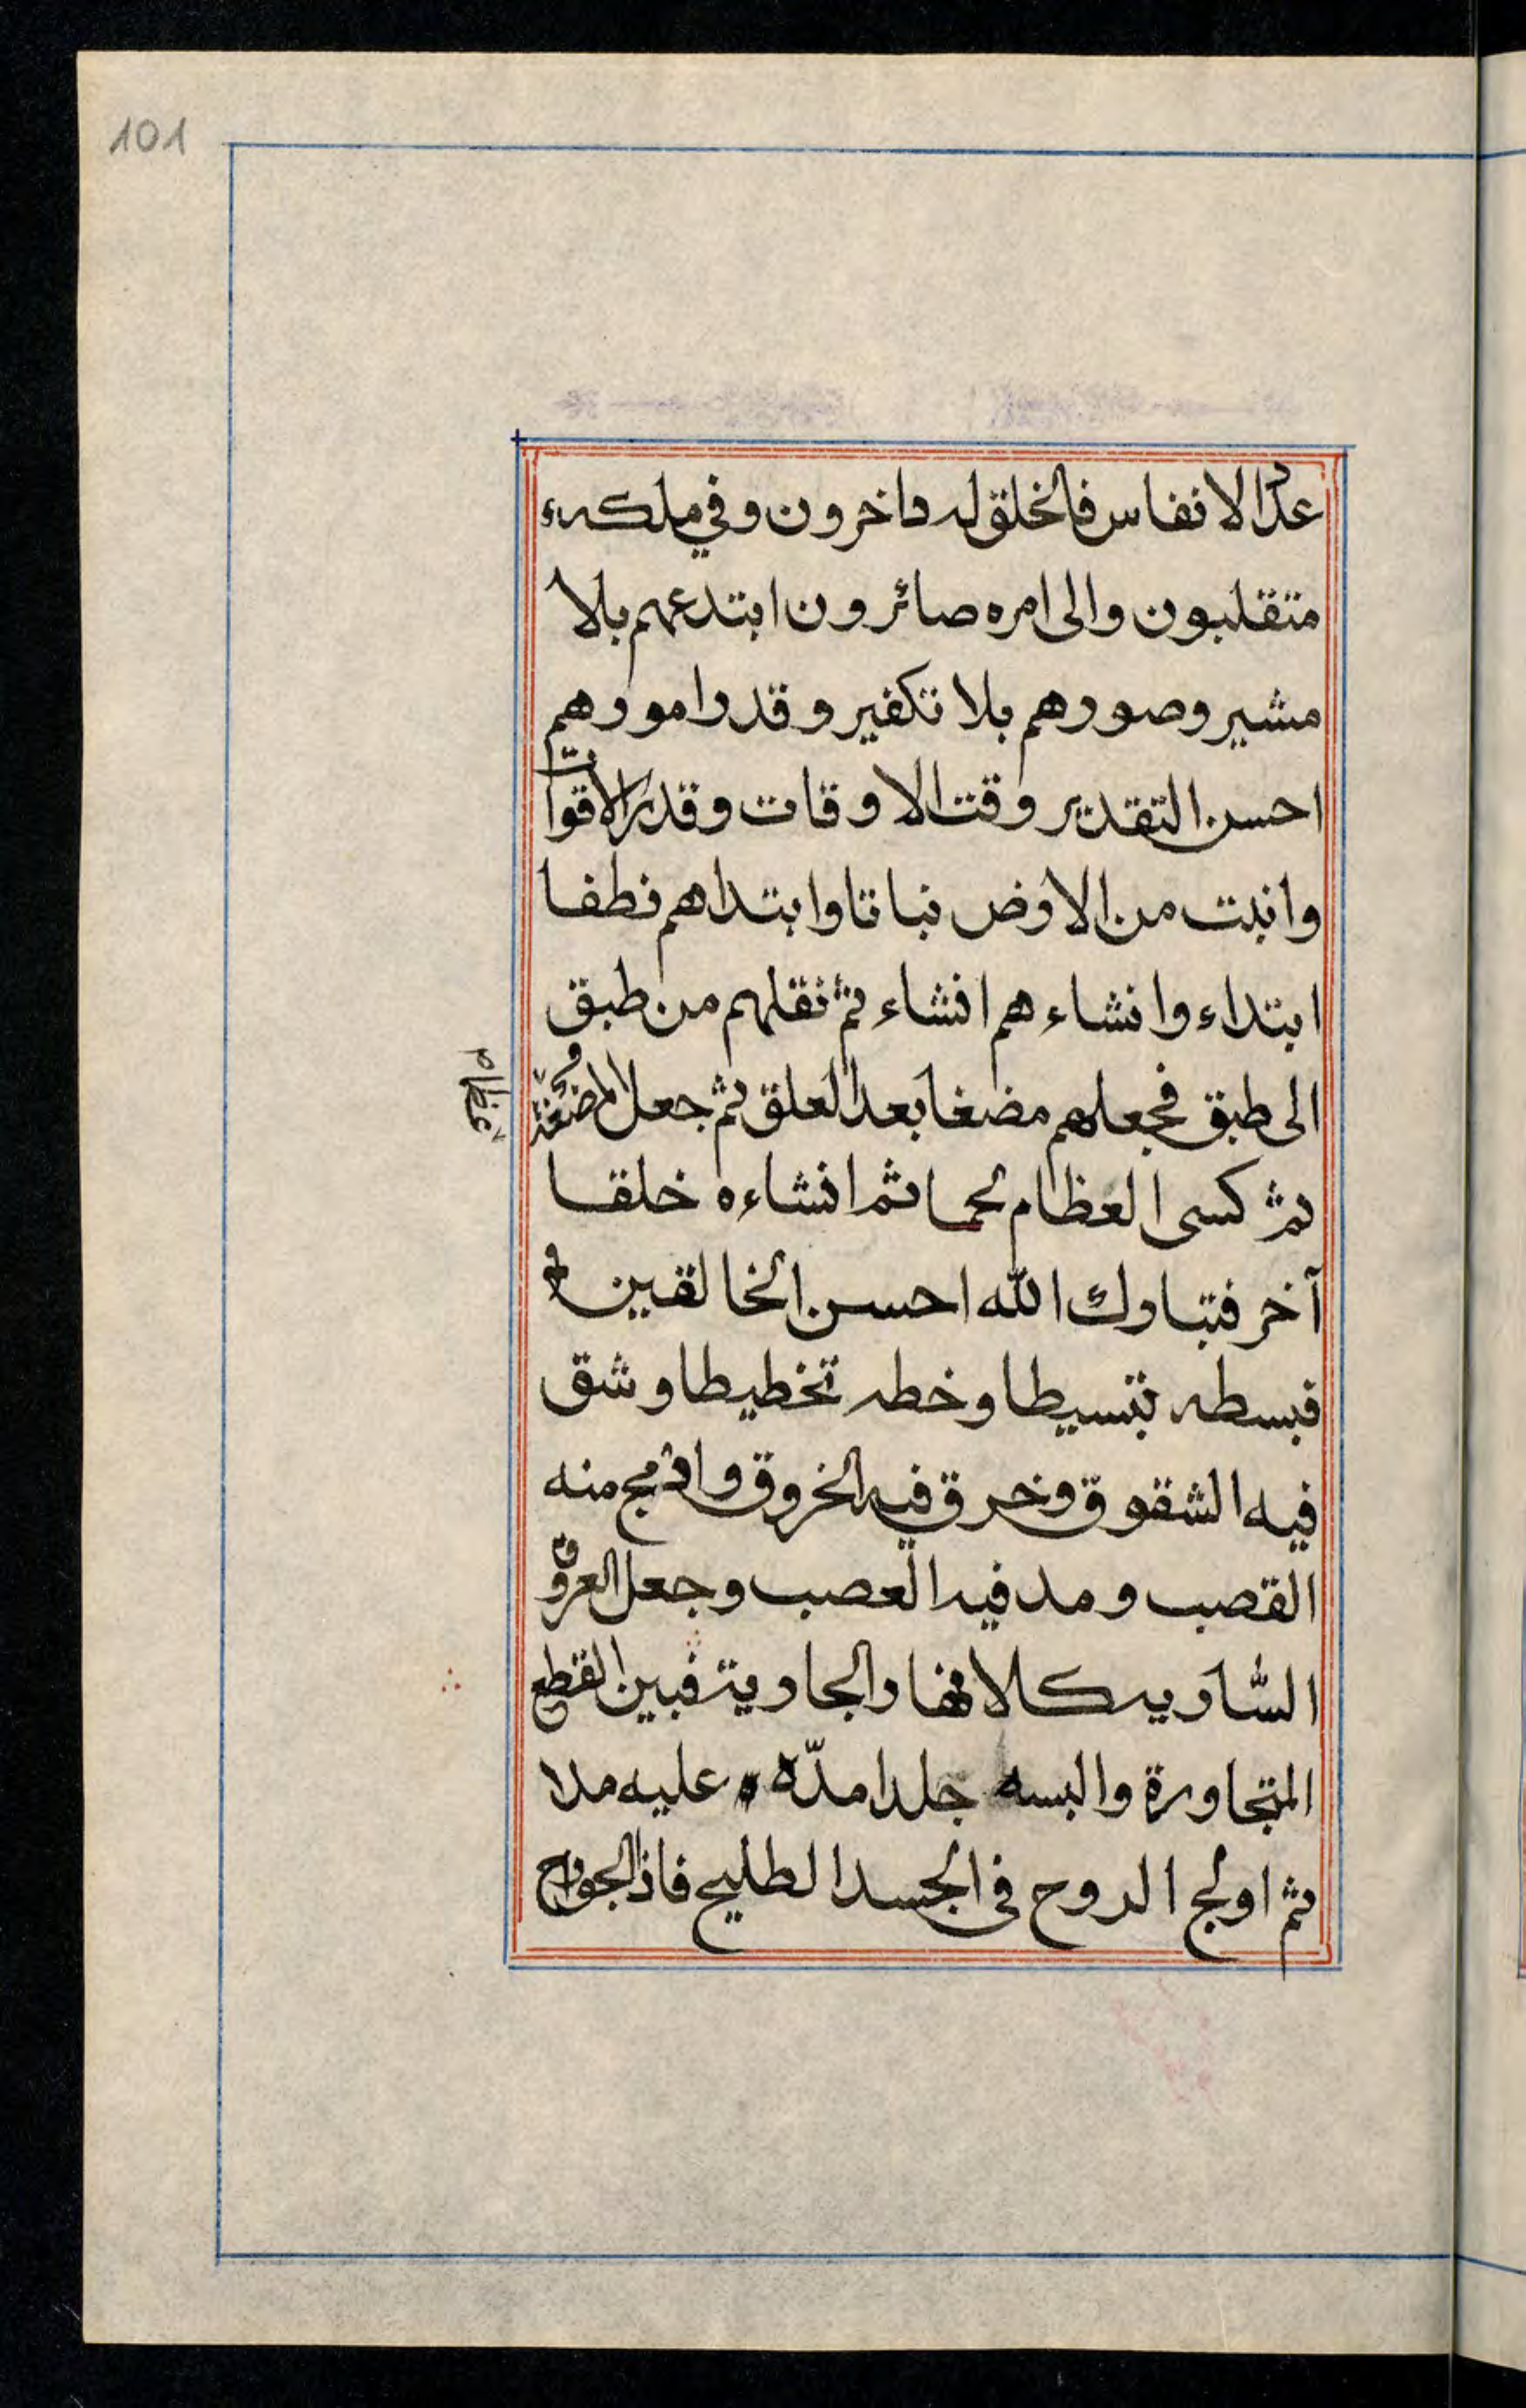 101
عدد الانفاس فالخلق له داخرون وفي ملكه
متقلبون والى امره صائرون ابتدعهم بلا
مشير وصورهم بلا تكفير وقدر امورهم
احسن التقدير وقت الاوقات وقدر الاقوات
وانبت من الارض نباتا وابتداهم نطفا
ابتداء وانشاء هم انشاء ثم نقلهم من طبق
الى طبق فجعلهم مضغا بعد العلق ثم جعل المضغة
عظام
ثم كسى العظام لحما ثم انشاءه خلقا
آخر فتبارك الله احسن الخالقين
فبسطه تبسيطا وخطه تخطيطا وشق
فيه الشقوق وخرق فيه الخروق منه
القصب ومد فيه العصب وجعل العروق
السارية كالانهار الجارية بين القطع
المتجاورة والبسه جلدا مدّه عليه مدا
ثم اولج الروح في الجسد الطليح فاذا الجوارح